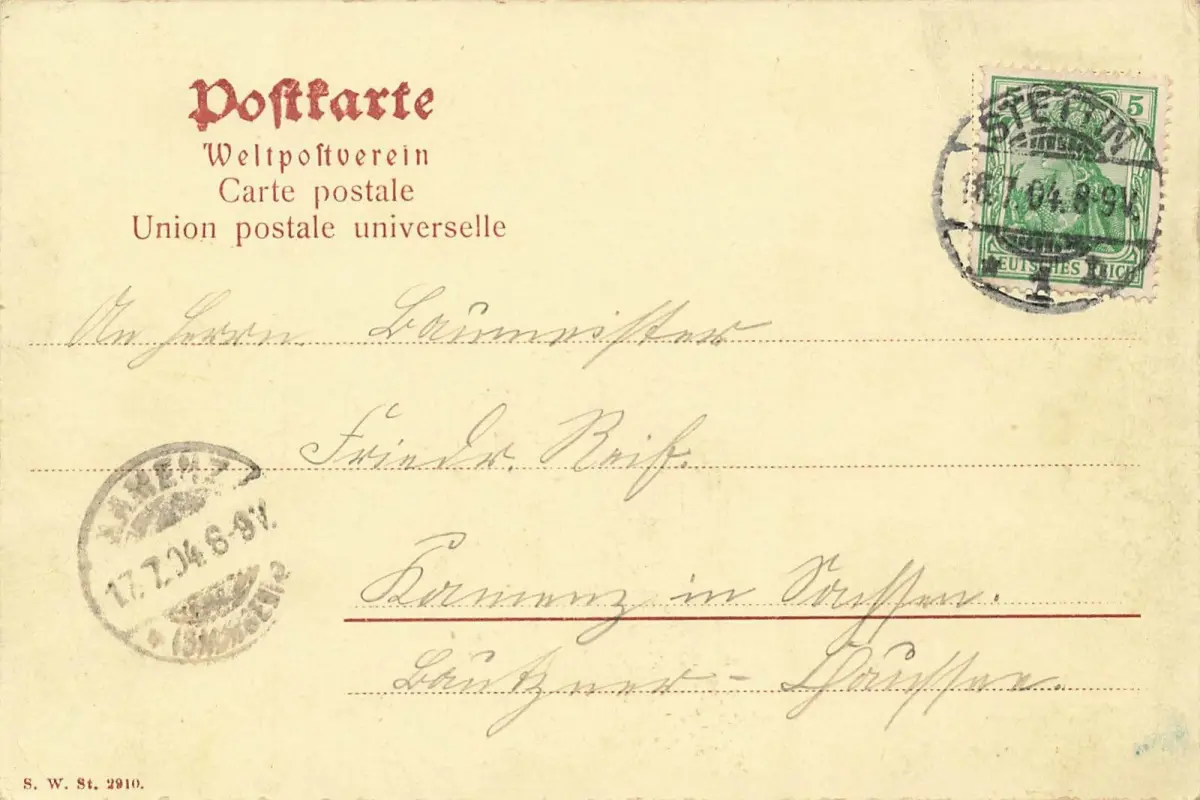 Postkarte
Weltpostverein
Carte postale
Union postale universelle
STETTIN
16.7.04.8-9V.
* 1 b
5
DEUTSCHES REICH
An Herrn Baumeister
Friedr. Reif.
KAMENZ
17.7.04.8-9V.
* (SACHSEN) a
Kamenz in Sachsen.
Bautzner - Chaussee.
S. W. St. 2910.